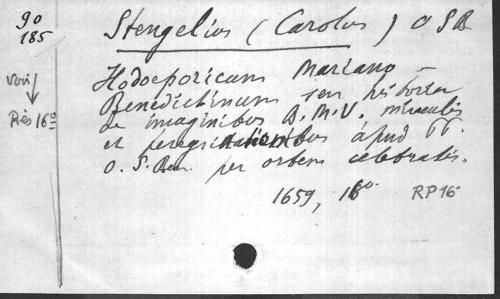 90
185
Stengelius (Carolus) O S B
voir
Rés 16°
Hodoeporicum Mariano
Benedictinum seu historia
de imaginibus B. M. V. miraculis
et peregrinationibus apud PP.
O. S. Ben. per orbem celebratis.
1659, 16°.
RP 16